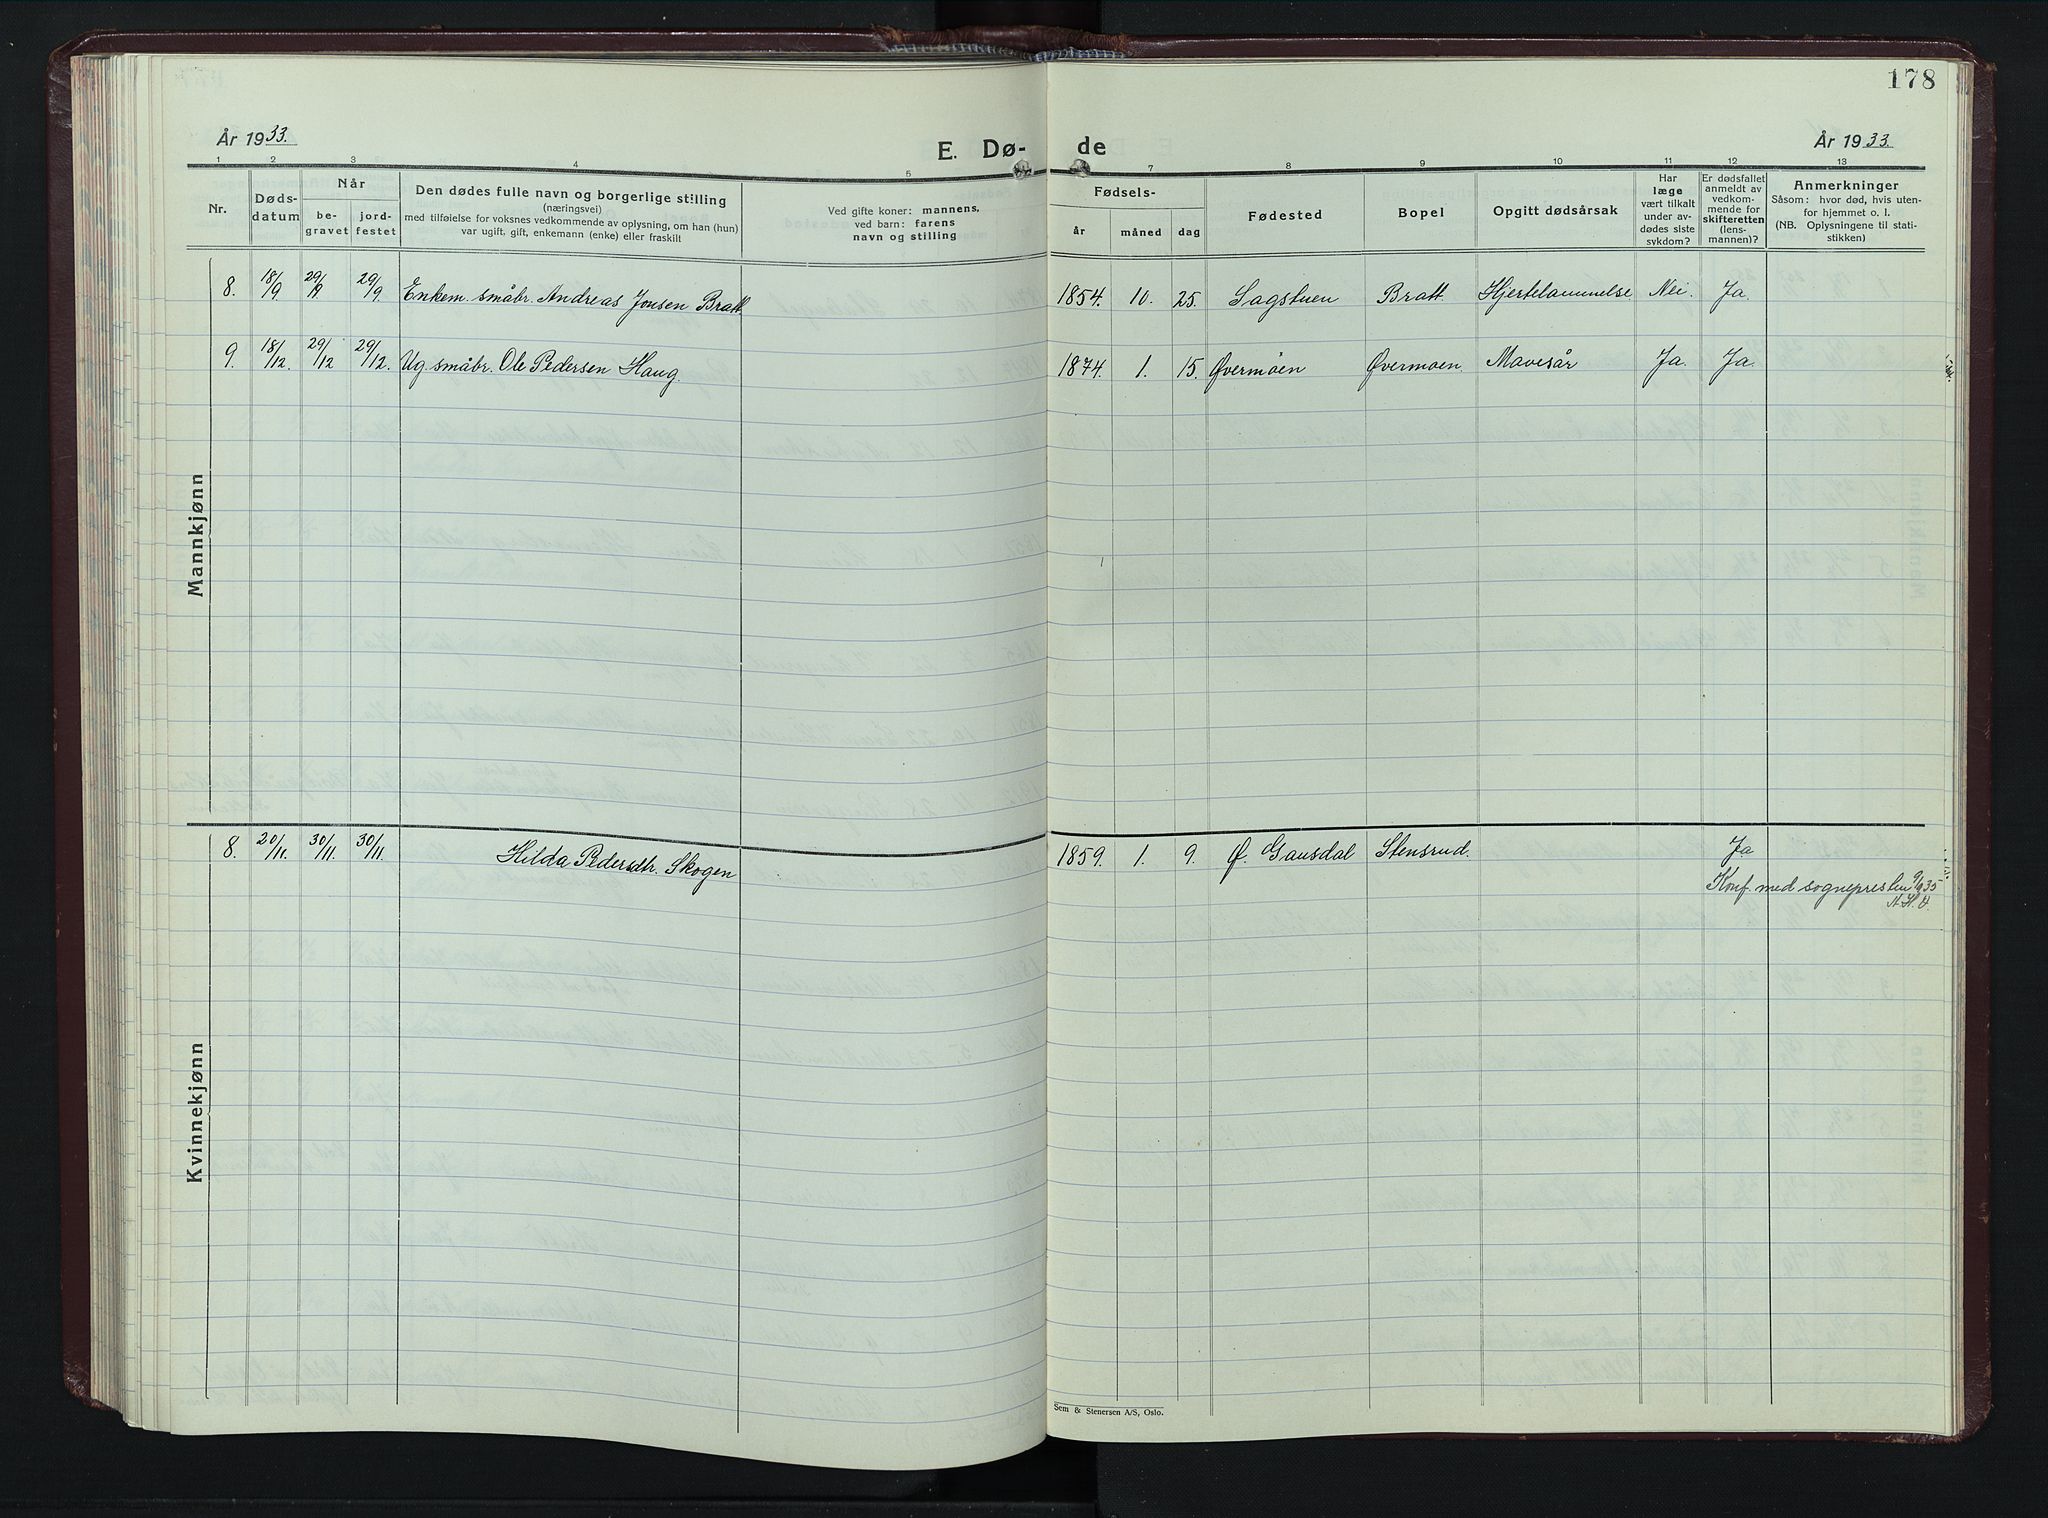 178
År 1933.
E. Dø-
de
År 1933.
1 2 3 4 5 7 8 9 10 11 12 13
Nr.
Døds-
datum
Når
be-
gravet
jord-
festet
Den dødes fulle navn og borgerlige stilling
(næringsvei)
med tilføielse for voksnes vedkommende av oplysning, om han (hun)
var ugift, gift, enkemann (enke) eller fraskilt
Ved gifte koner: mannens,
ved barn: farens
navn og stilling
Fødsels-
år
måned
dag
Fødested
Bopel
Opgitt dødsårsak
Har
læge
vært tilkalt
under av-
dødes siste
sykdom?
Er dødsfallet
anmeldt av
vedkom-
mende for
skifteretten
(lens-
mannen)?
Anmerkninger
Såsom: hvor død, hvis uten-
for hjemmet o. l.
(NB. Oplysningene til stati-
stikken)
Mannkjønn
8. 18/9 29/9 29/9 Enkem. småbr. Andreas Jonsen Bratt 1854. 10. 25. Sagstuen Bratt Hjertelammelse Nei. Ja.
9. 18/12. 29/12 29/12. Ug. småbr. Ole Pedersen Haug. 1874. 1. 15. Øvermoen Øvermoen. Mavesår Ja. Ja.
Kvinnekjønn
8. 20/11. 30/11. 30/11. Hilda Pedersdtr. Skogen 1859. 1. 9. Ø. Gausdal Stensrud. Ja
Konf. med sognepresten 9/9 35
Sem & Stenersen A/S, Oslo.